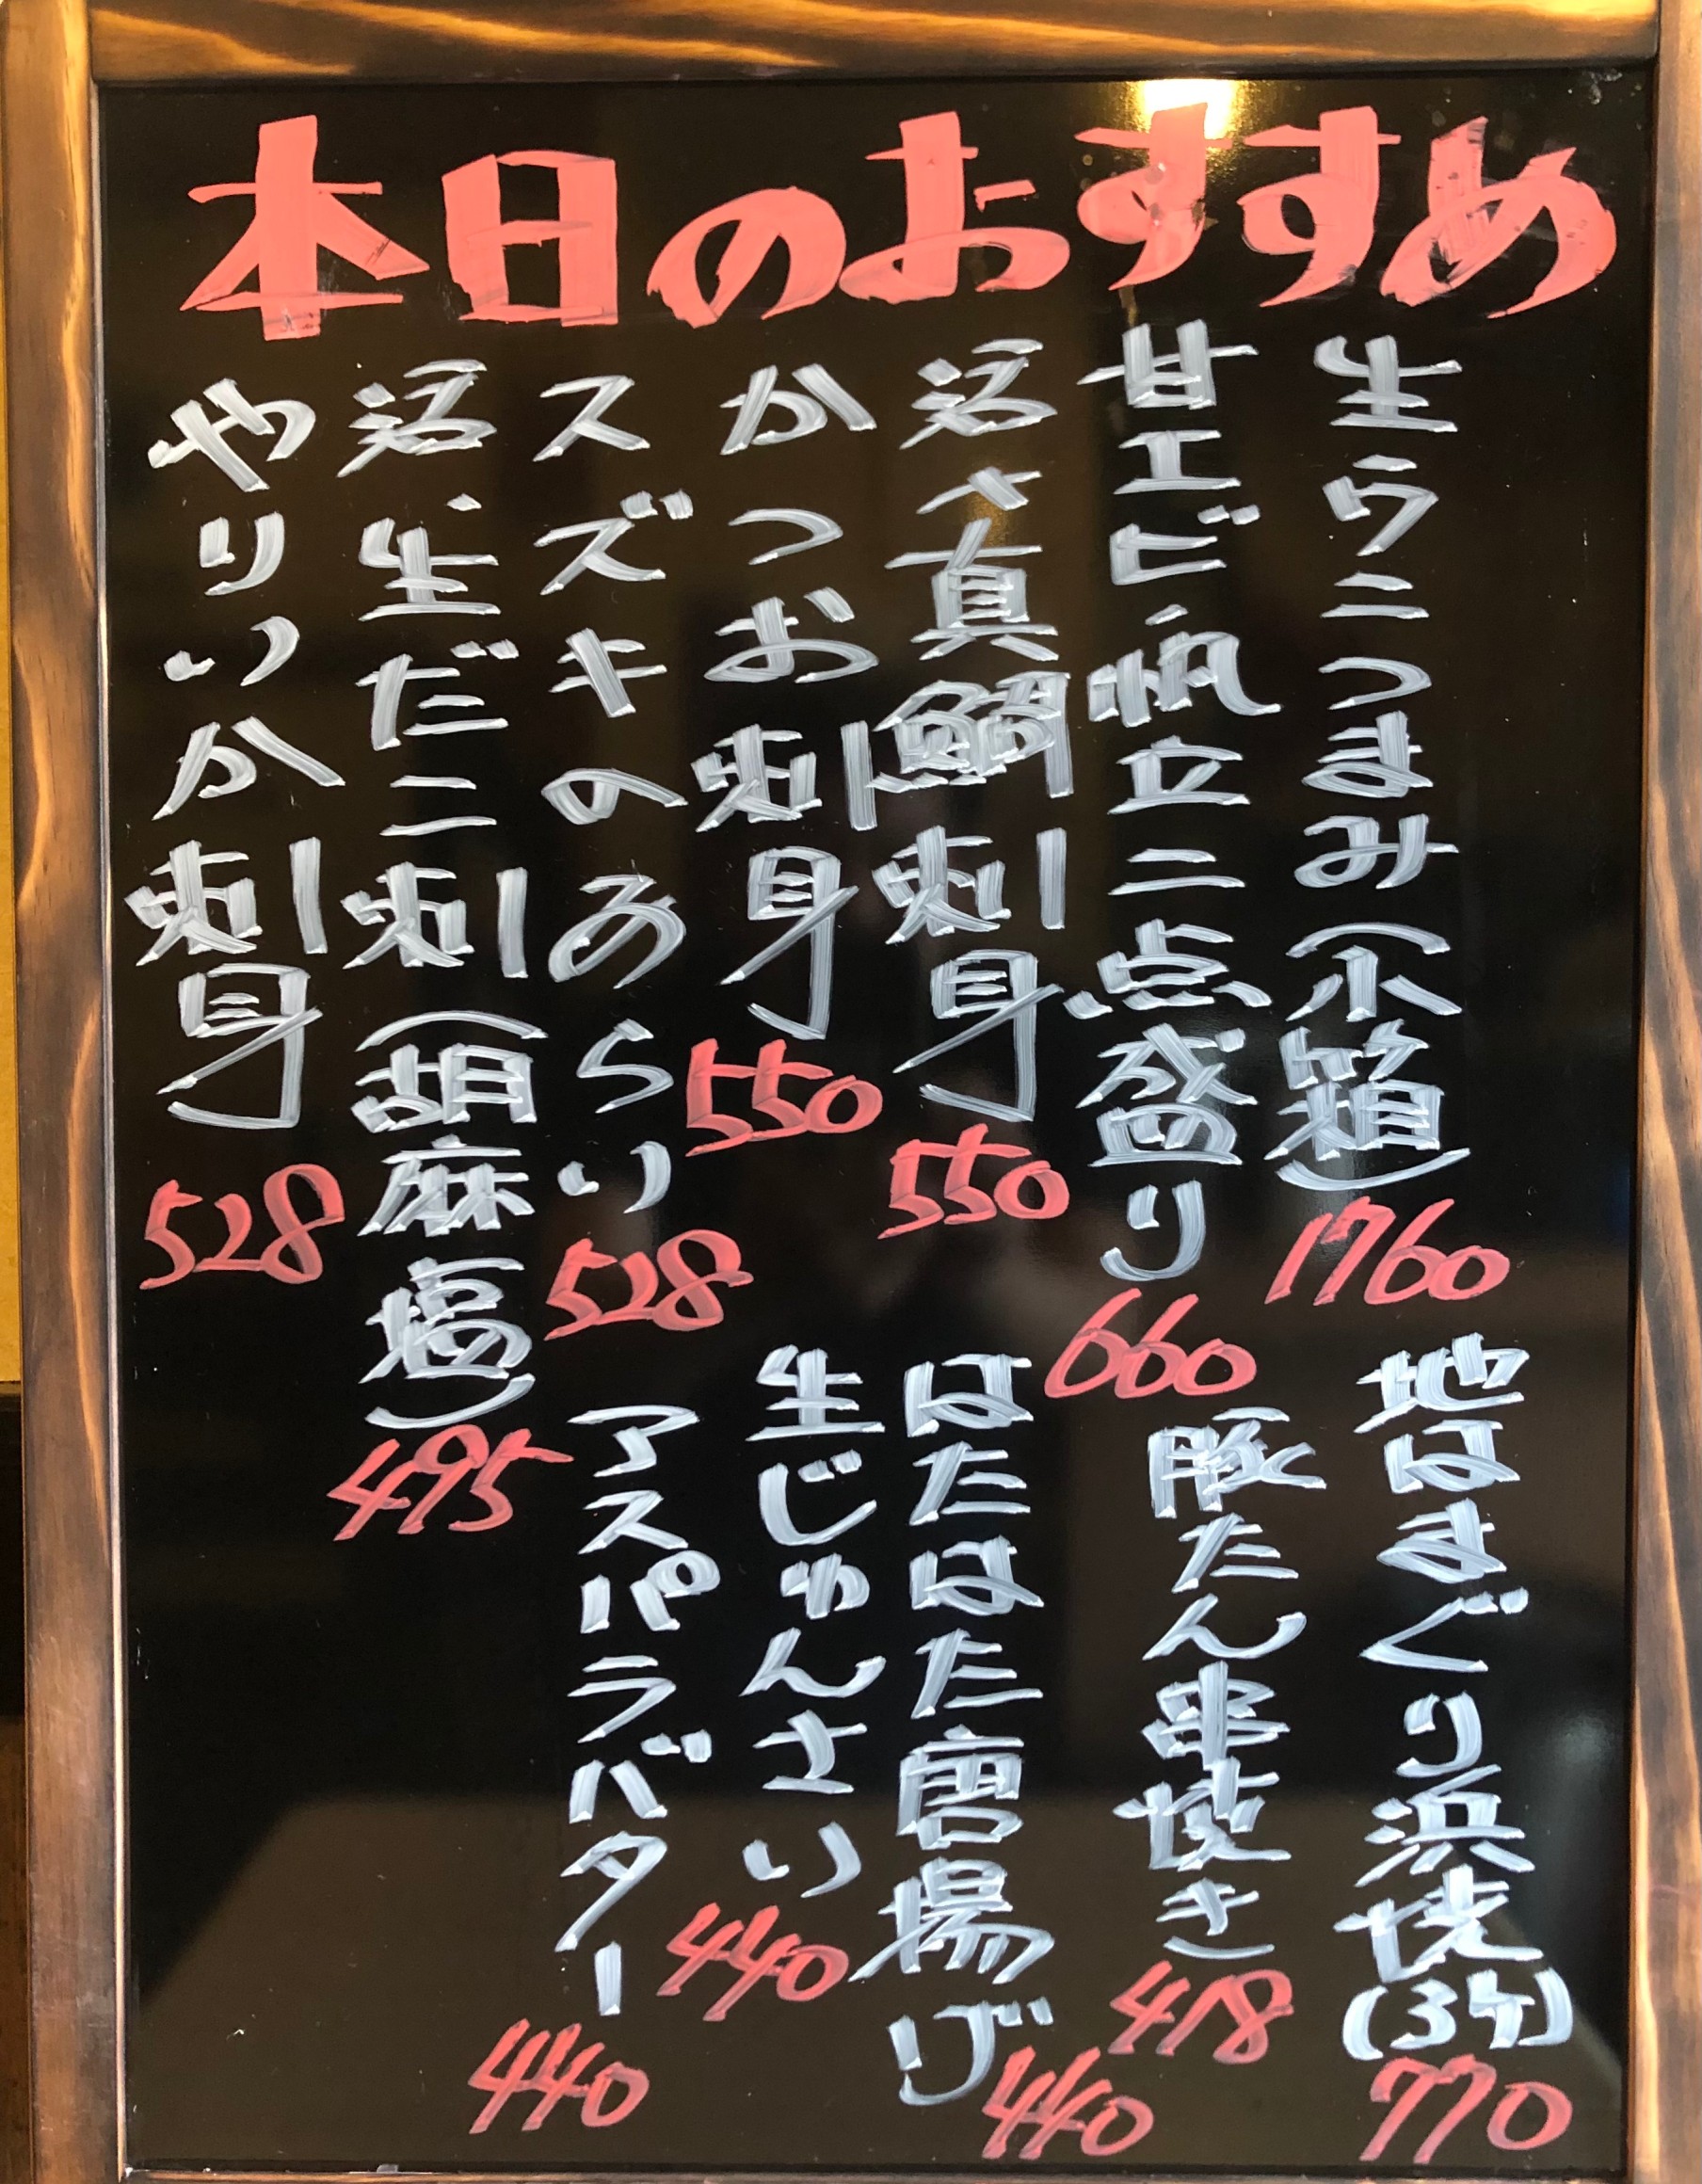 本日のおすすめ
生ウニつまみ(小箱) 1760
甘エビ、帆立二点盛り 660
活〆真鯛刺身 550
かつお刺身 550
スズキのあらい 528
活、生だこ刺(胡麻塩) 495
やりいか刺身 528
地はまぐり浜焼(3ケ) 770
豚たん串焼き 418
はたはた唐揚げ 440
生じゅんさい 440
アスパラバター 440